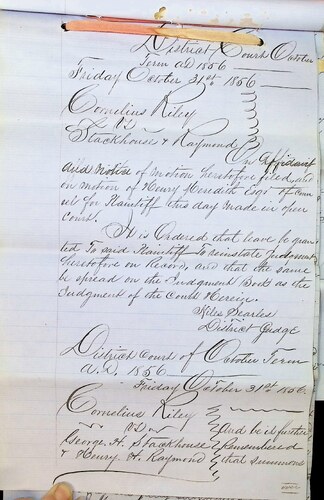 District Court October
Term AD 1856
Friday October 31st 1856
Cornelius Riley
vs
Stackhouse & Raymond
On Affidavit
and Notice of Motion heretofore filed, and
on Motion of Henry Meredith Esqr of Coun
sel for Plaintiff this day made in open
Court.
It is Ordered that leave be gran
ted To said Plaintiff To reinstate Judgment
heretofore on Record, and that the same
be spread on the Judgment Book as the
Judgment of the Court Herein.
Niles Searles
District Judge
District Court of October Term
A.D. 1856
Friday October 31st 1856.
Cornelius Riley
vs And be it further
George H. Stackhouse remembered
& Henry H. Raymond that summons